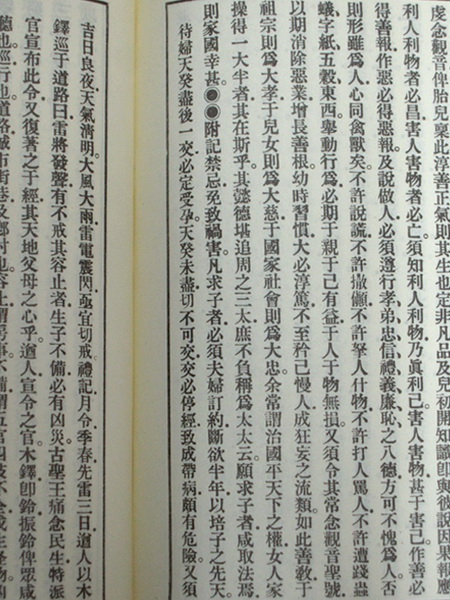 虔念觀音俾胎兒稟此淳善正氣則其生也定非凡品及兒初開知識卽與彼說因果報應
利人利物者必昌害人害物者必亡須知利人利物乃眞利己害人害物甚于害己作善必
得善報作惡必得惡報及說做人必須遵行孝弟忠信禮義廉恥之八德方可不愧爲人否
則形雖爲人心同禽獸矣不許說謊不許撒癩不許拏人什物不許打人罵人不許遭踐蟲
蟻字紙五穀東西舉動行爲必期于親于己有益于人于物無損又須令其常念觀音聖號
以期消除惡業增長善根幼時習慣大必淳篤不至矜己慢人成狂妄之流類如此善教于
祖宗則爲大孝于兒女則爲大慈于國家社會則爲大忠余常謂治國平天下之權女人家
操得一大半者其在斯乎其懿德堪追周之三太庶不負稱爲太太云願求子者咸取法焉
則家國幸甚●●附記禁忌免致禍害凡求子者必須夫婦訂約斷欲半年以培子之先天
待婦天癸盡後一交必定受孕天癸未盡切不可交交必停經致成帶病頗有危險又須
吉日良夜天氣清明大風大雨雷電震閃亟宜切戒禮記月令季春先雷三日遒人以木
鐸巡于道路曰雷將發聲有不戒其容止者生子不備必有凶災古聖王痛念民生特派
官宣布此令又復著之于經其天地父母之心乎遒人宣令之官木鐸卽鈴振鈴俾衆咸
聽也巡行也道路城市街巷及鄉村也容止謂房事不備謂五官四肢不全或生怪物